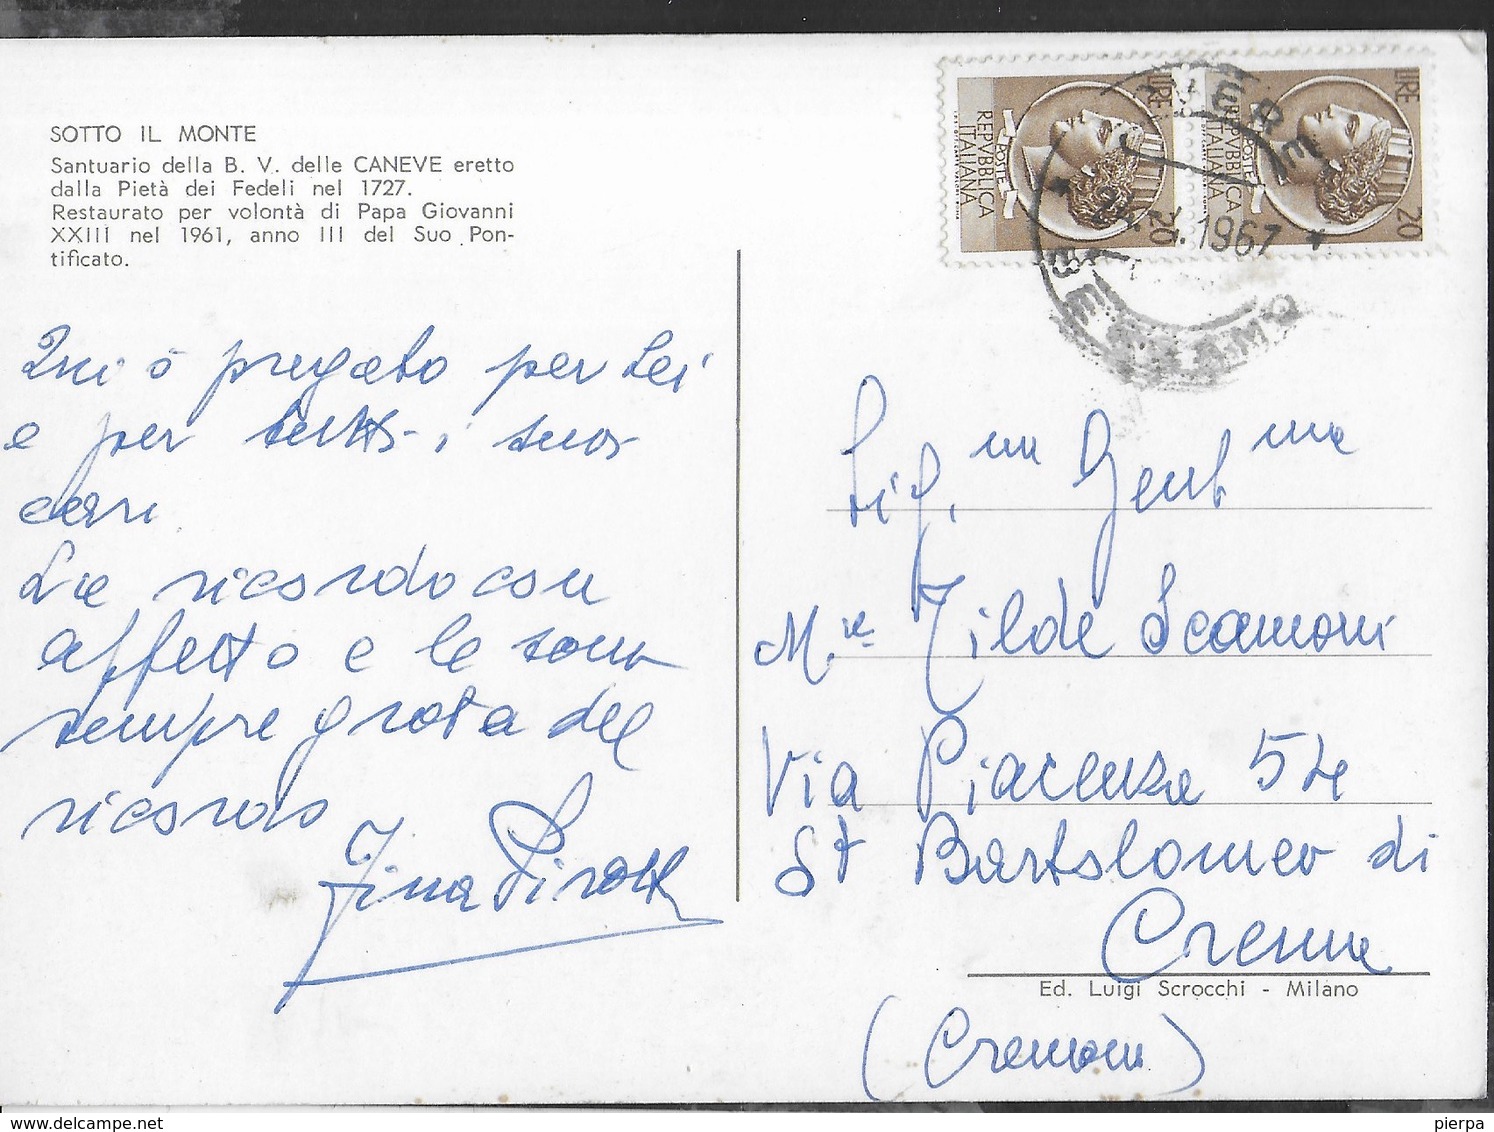 SOTTO IL MONTE
Santuario della B. V. delle CANEVE eretto
dalla Pietà dei Fedeli nel 1727.
Restaurato per volontà di Papa Giovanni
XXIII nel 1961, anno III del Suo Pon-
tificato.
Qui ò pregato per Lei
e per tutti i suoi
cari
La ricordo con
affetto e le sono
sempre grata del
ricordo
Pina
LIRE 20
POSTE
REPVBBLICA
ITALIANA
LIRE 20
POSTE
REPVBBLICA
ITALIANA
1967
BERGAMO
Sig.na Gent.ma
M.ra Tilde Scamoni
Via Piacenza 54
St Bartolomeo di
Crema
Ed. Luigi Scrocchi - Milano
(Cremona)
pierpa